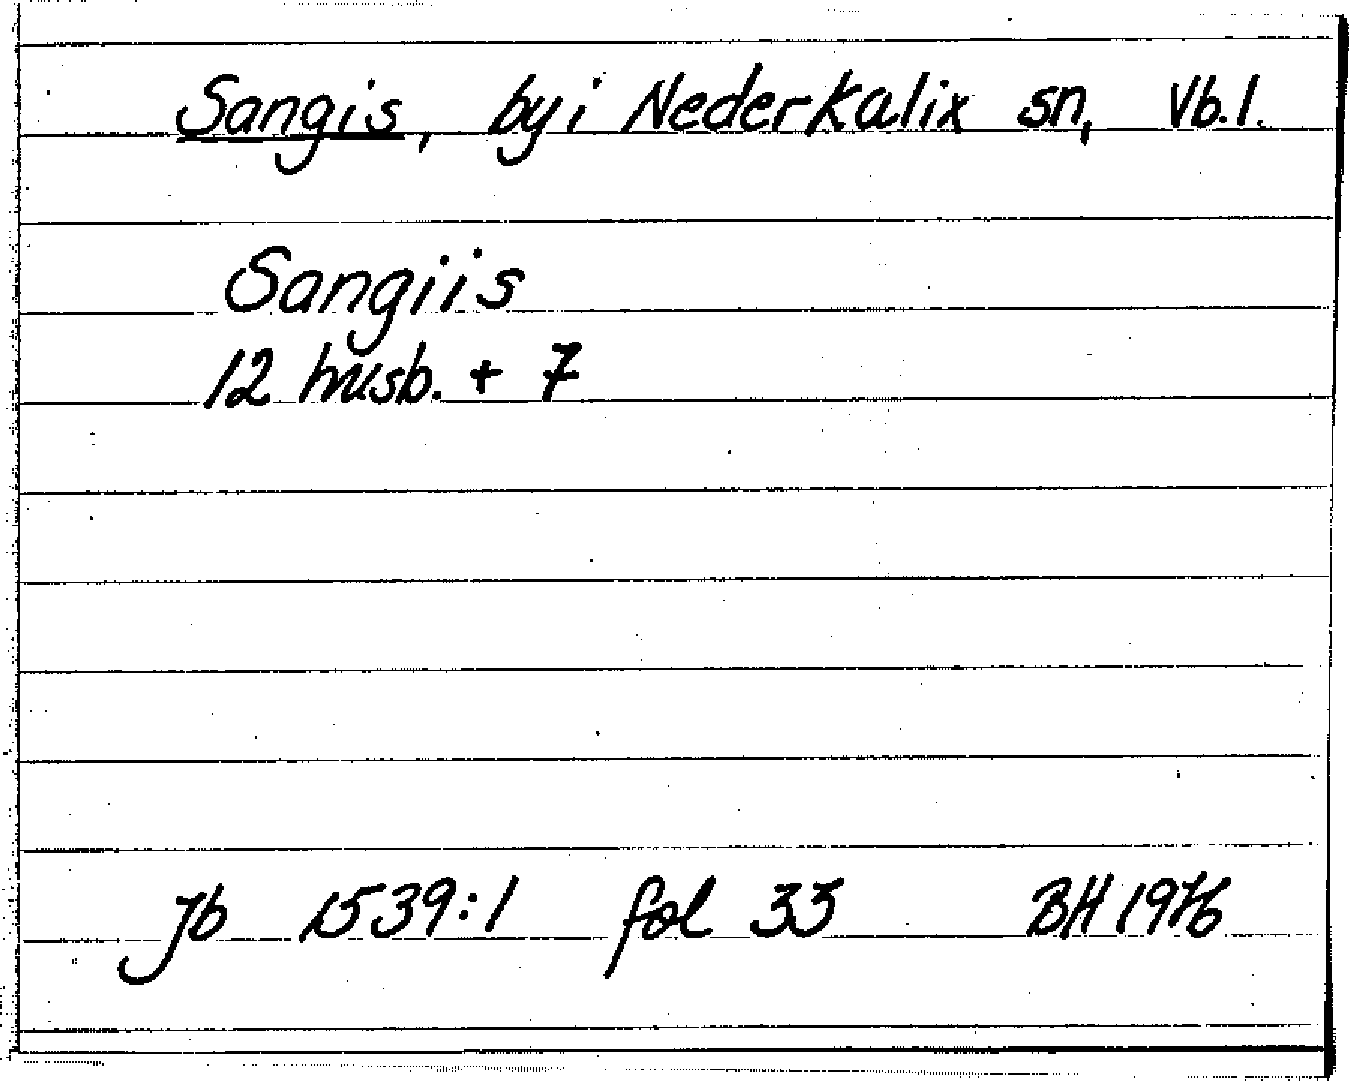 Sangis, by i Nederkalix sn, Vb. l.
Sangiis
12 husb. + 7
Jb 1539:1 fol 33 BH 1976